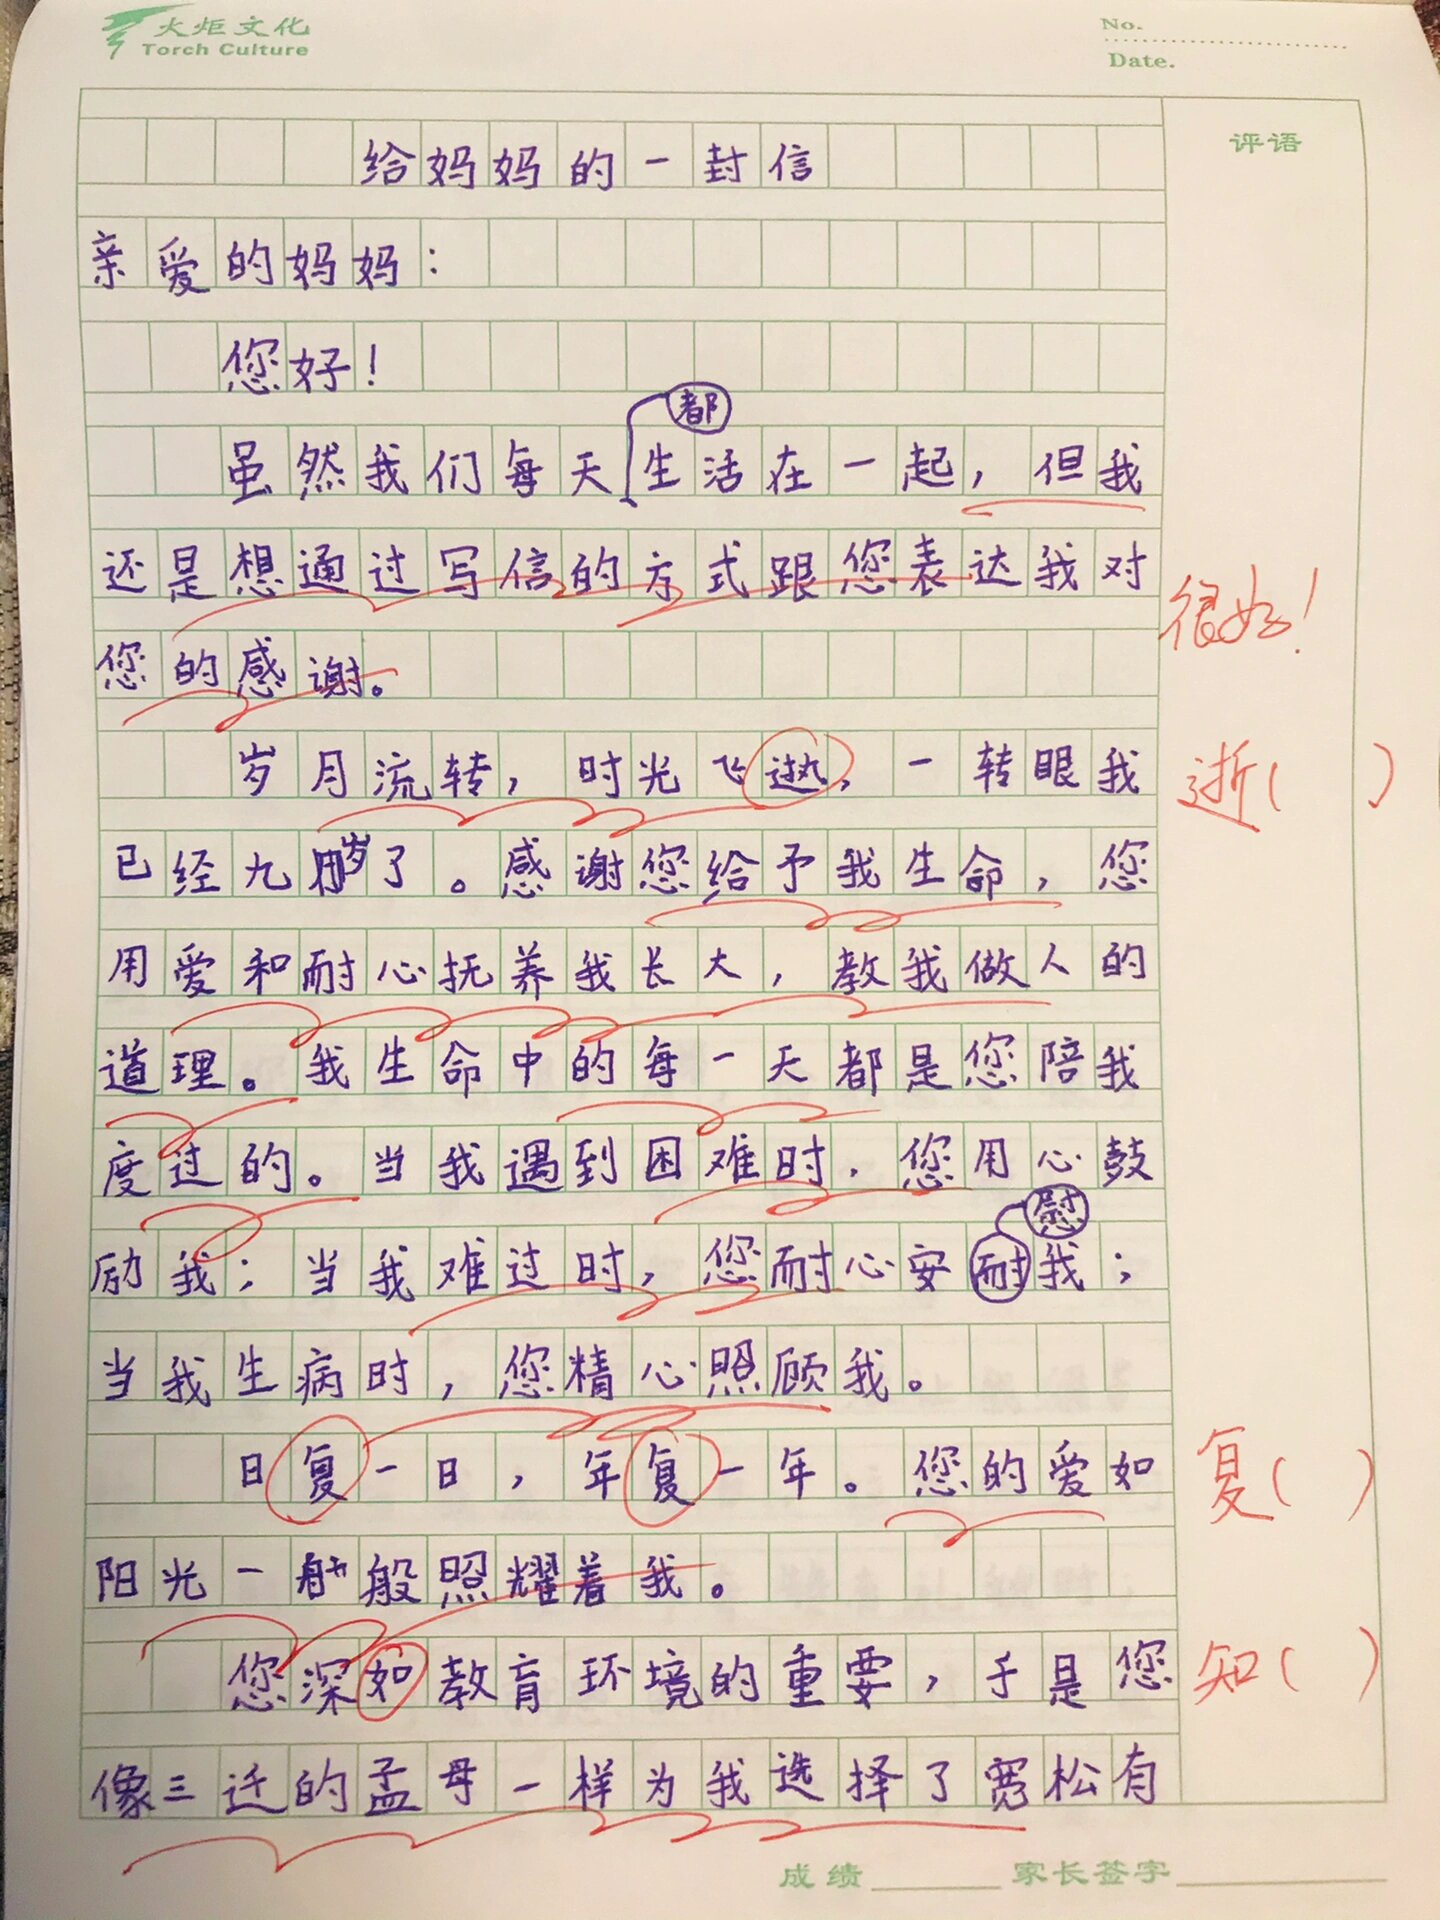 火炬文化
Torch Culture
No.
Date.
评语
给妈妈的一封信
亲爱的妈妈：
您好！
都
虽然我们每天生活在一起，但我
还是想通过写信的方式跟您表达我对
很好！
您的感谢。
岁月流转，时光飞，一转眼我
逝（ ）
已经九岁了。感谢您给予我生命，您
用爱和耐心抚养我长大，教我做人的
道理。我生命中的每一天都是您陪我
度过的。当我遇到困难时，您用心鼓
慰
励我；当我难过时，您耐心安耐我；
当我生病时，您精心照顾我。
日复一日，年复一年。您的爱如
复（ ）
阳光一般照耀着我。
您深如教育环境的重要，于是您
知（ ）
像三迁的孟母一样为我选择了宽松有
成绩 家长签字